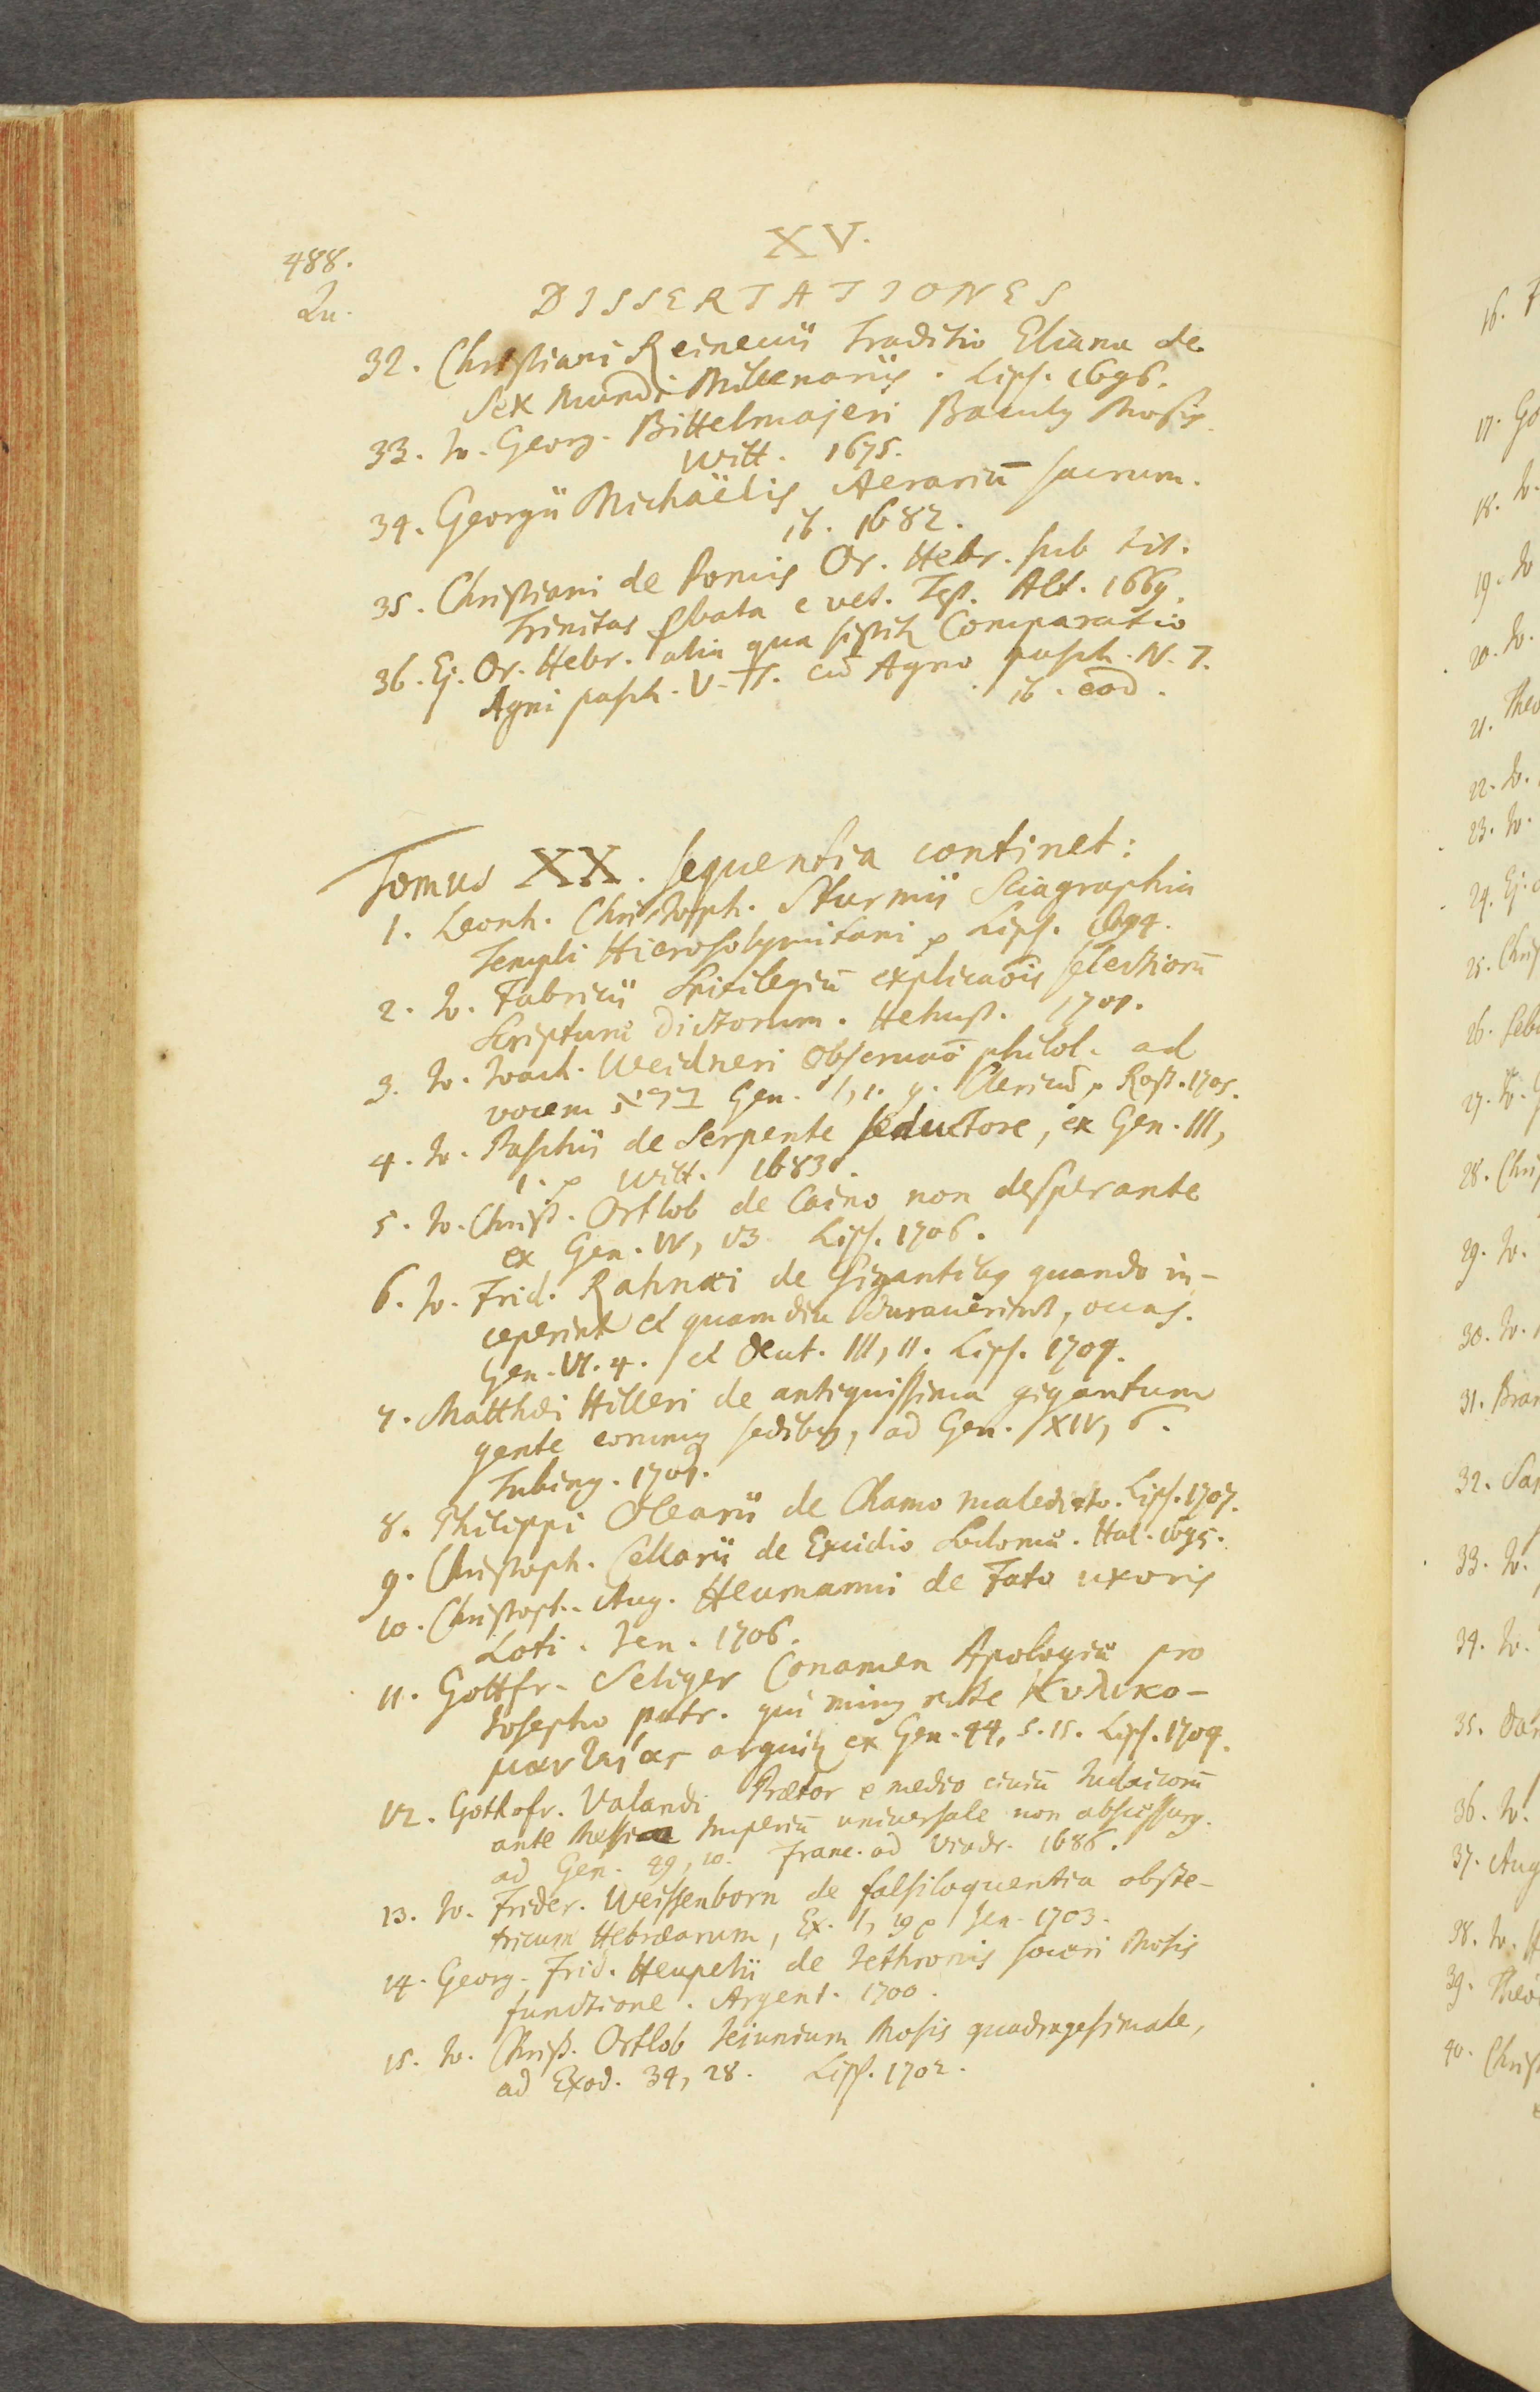 XV.
488.
Qu.
DISSERTATIONES
32. Christiani Reineccii Traditio Eliana de
sex mundi Millenariis. Lips. 1696.
33. Io. Georg. Bittelmajeri Baculg Mosis.
Witt. 1675.
34. Georgii Michaëlis Aerariū sacrum.
ib. 1682.
35. Christiani de Pomis Or. Hebr. sub tit.
Trinitas ꝓbata e vet. Test. Alt. 1669.
36. Ej. Or. Hebr. alia qua sistitr Comparatio
Agni pasch. V. T. cū Agno pasch. N. T.
ib. eod.
Tomus XX. sequentia continet:
1. Leonh. Christoph. Sturmii Sciagraphia
Templi Hierosolymitani Lips. 1694.
2. Io. Fabricii Spicilegiū explicaōis selectiorū
Scripturæ dictorum. Helmst. 1701.
3. Io. Ioach. Weidneri Observaō philol. ad
vocem ברא Gen. I, 1. Clericū Rost. 1705.
4. Io. Paschii de Serpente seductore, ex Gen. III,
1. Witt. 1683.
5. Io. Christ. Ortlob de Caino non desperante
ex Gen. IV, 13 Lips. 1706.
6. Io. Frid. Rahnæi de Gigantibg quando in-
ceperint et quam diu duraverint, occas.
Gen. VI. 4. et Deut. III, 11. Lips. 1709.
7. Matthæi Hilleri de antiquissima gigantum
gente eorumq sedibg, ad Gen. XIV, 5.
Tubing. 1701.
8. Philippi Olearii de Chamo maledicto. Lips. 1707.
9. Christoph. Cellarii de Excidio Sodomæ. Hal. 1695.
10. Christoph. Aug. Heumanni de Fato uxoris
Loti. Jen. 1706.
11. Gottfr. Seliger Conamen Apologiæ pro
Iosepho patr. qui ming recte Κυλικο-
μαντείας arguitr ex Gen. 44, 5. 15. Lips. 1709.
12. Gothofr. Valandi Prætor e medio civiū Iudaicorū
ante Messiæ Imperiū universale non abscessurg.
ad Gen. 49, 10. Franc. ad Viadr. 1686.
13. Io. Frider. Weissenborn de falsiloquentia obste-
tricum Hebræarum, Ex. I, 19 Jen. 1703.
14. Georg. Frid. Heupelii de Iethronis soceri Mosis
functione. Argent. 1700.
15. Io. Christ. Ortlob Ieiunium Mosis quadragesimale,
ad Exod. 34, 28. Lips. 1702.
16.
17. Go
18. Io.
19. Io
20. Io.
21. Theo
22. Io.
23. Io.
24. Ej.
25. Chris
26. Seb
27. Io.
28. Chris
29. Io.
30. Io.
31. Bran
32. Sa
33. Io.
34. Io.
35. Da
36. Io.
37. Aug
38. Io. H
39. Theo
40. Chris